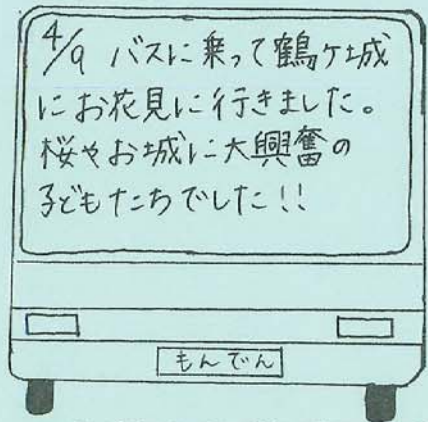 4/9 バスに乗って鶴ケ城
にお花見に行きました。
桜やお城に大興奮の
子どもたちでした!!
もんでん